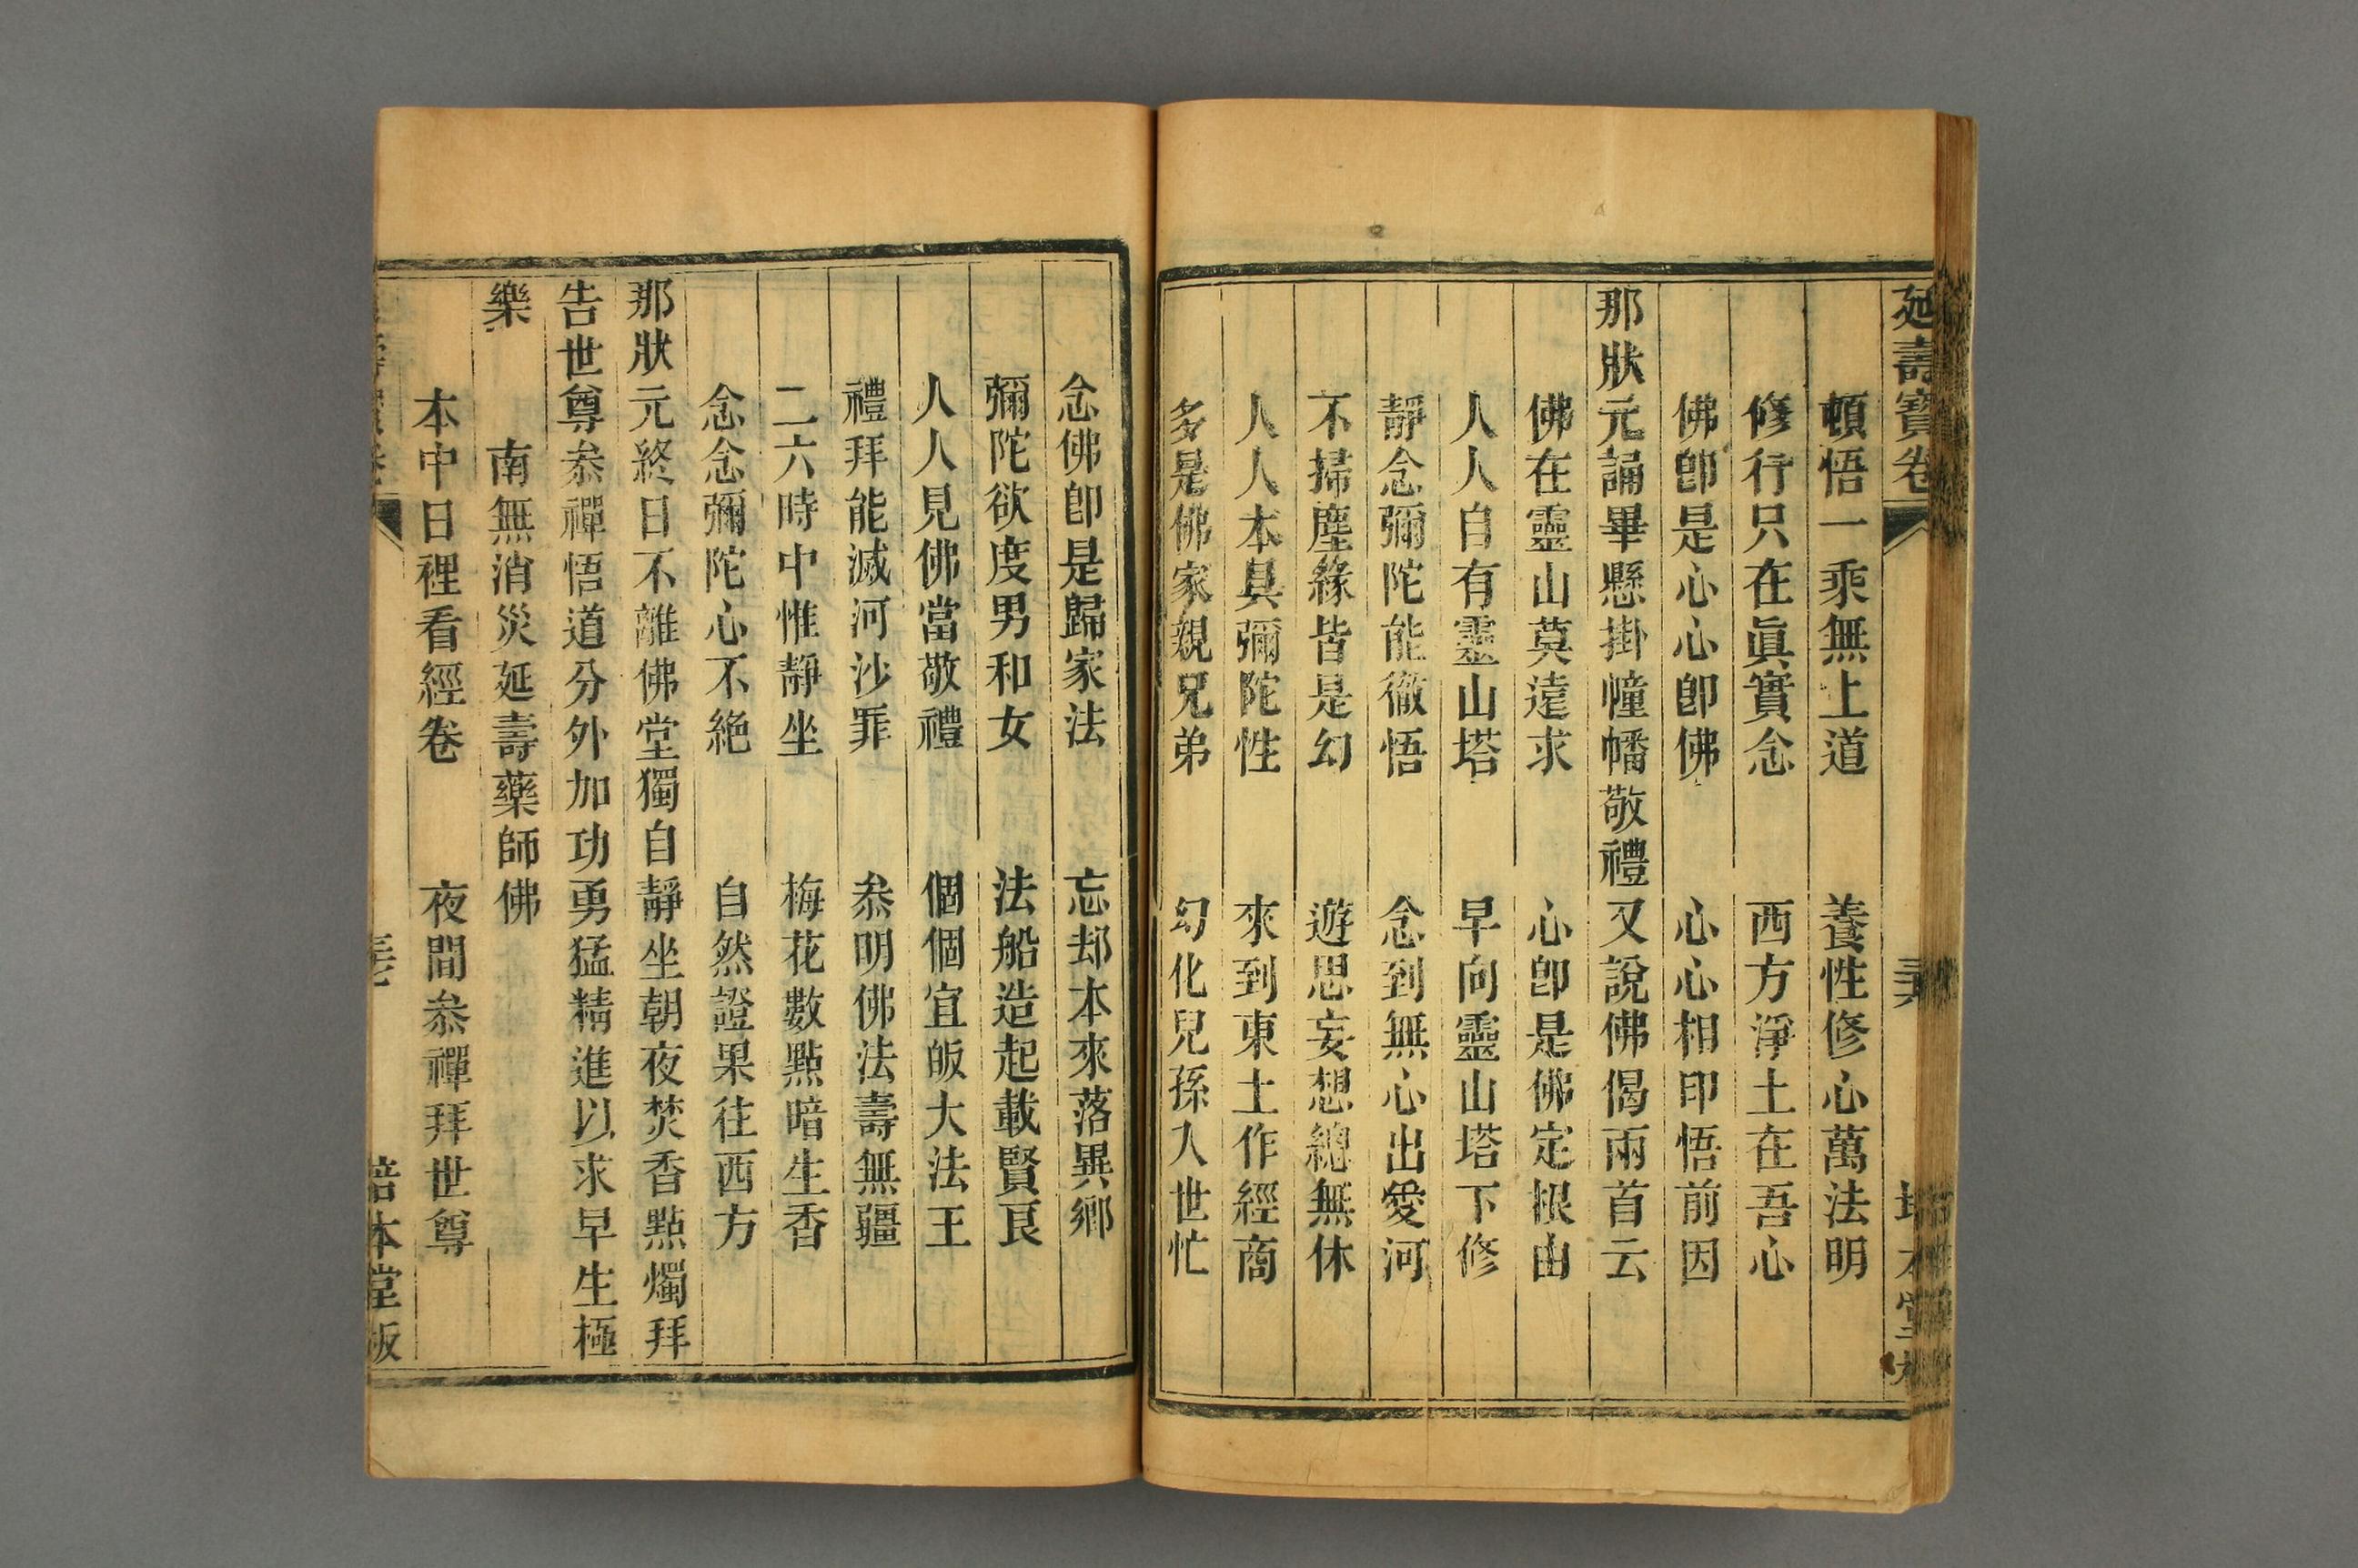 延壽寶卷
頓悟一乘無上道 養性修心萬法明
修行只在眞實念 西方淨土在吾心
佛卽是心心卽佛 心心相印悟前因
那狀元誦畢懸掛幢幡敬禮又說佛偈兩首云
佛在靈山莫遠求 心卽是佛定根由
人人自有靈山塔 早向靈山塔下修
靜念彌陀能徹悟 念到無心出愛河
不掃塵緣皆是幻 遊思妄想總無休
人人本具彌陀性 來到東土作經商
多是佛家親兄弟 幻化兒孫人世忙
念佛卽是歸家法 忘却本來落異鄉
彌陀欲度男和女 法船造起載賢良
人人見佛當敬禮 個個宜皈大法王
禮拜能滅河沙罪 叅明佛法壽無疆
二六時中惟靜坐 梅花數點暗生香
念念彌陀心不絕 自然證果往西方
那狀元終日不離佛堂獨自靜坐朝夜焚香點燭拜
告世尊叅禪悟道分外加功勇猛精進以求早生極
樂 南無消災延壽藥師佛
本中日裡看經卷 夜間叅禪拜世尊
培本堂板